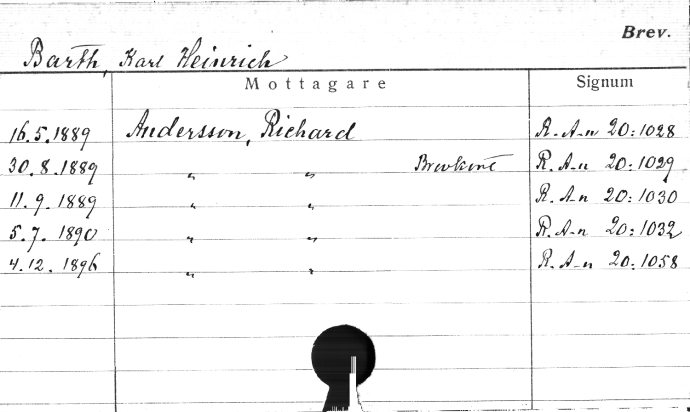 Brev.
Barth, Karl Heinrich
Mottagare Signum
16.5.1889 Andersson, Richard R. A-n 20:1028
30.8.1889 " " Brevkort R. A-n 20:1029
11.9.1889 " " R. A-n 20:1030
5.7.1890 " " R. A-n 20:1032
4.12.1896 " " R. A-n 20:1058